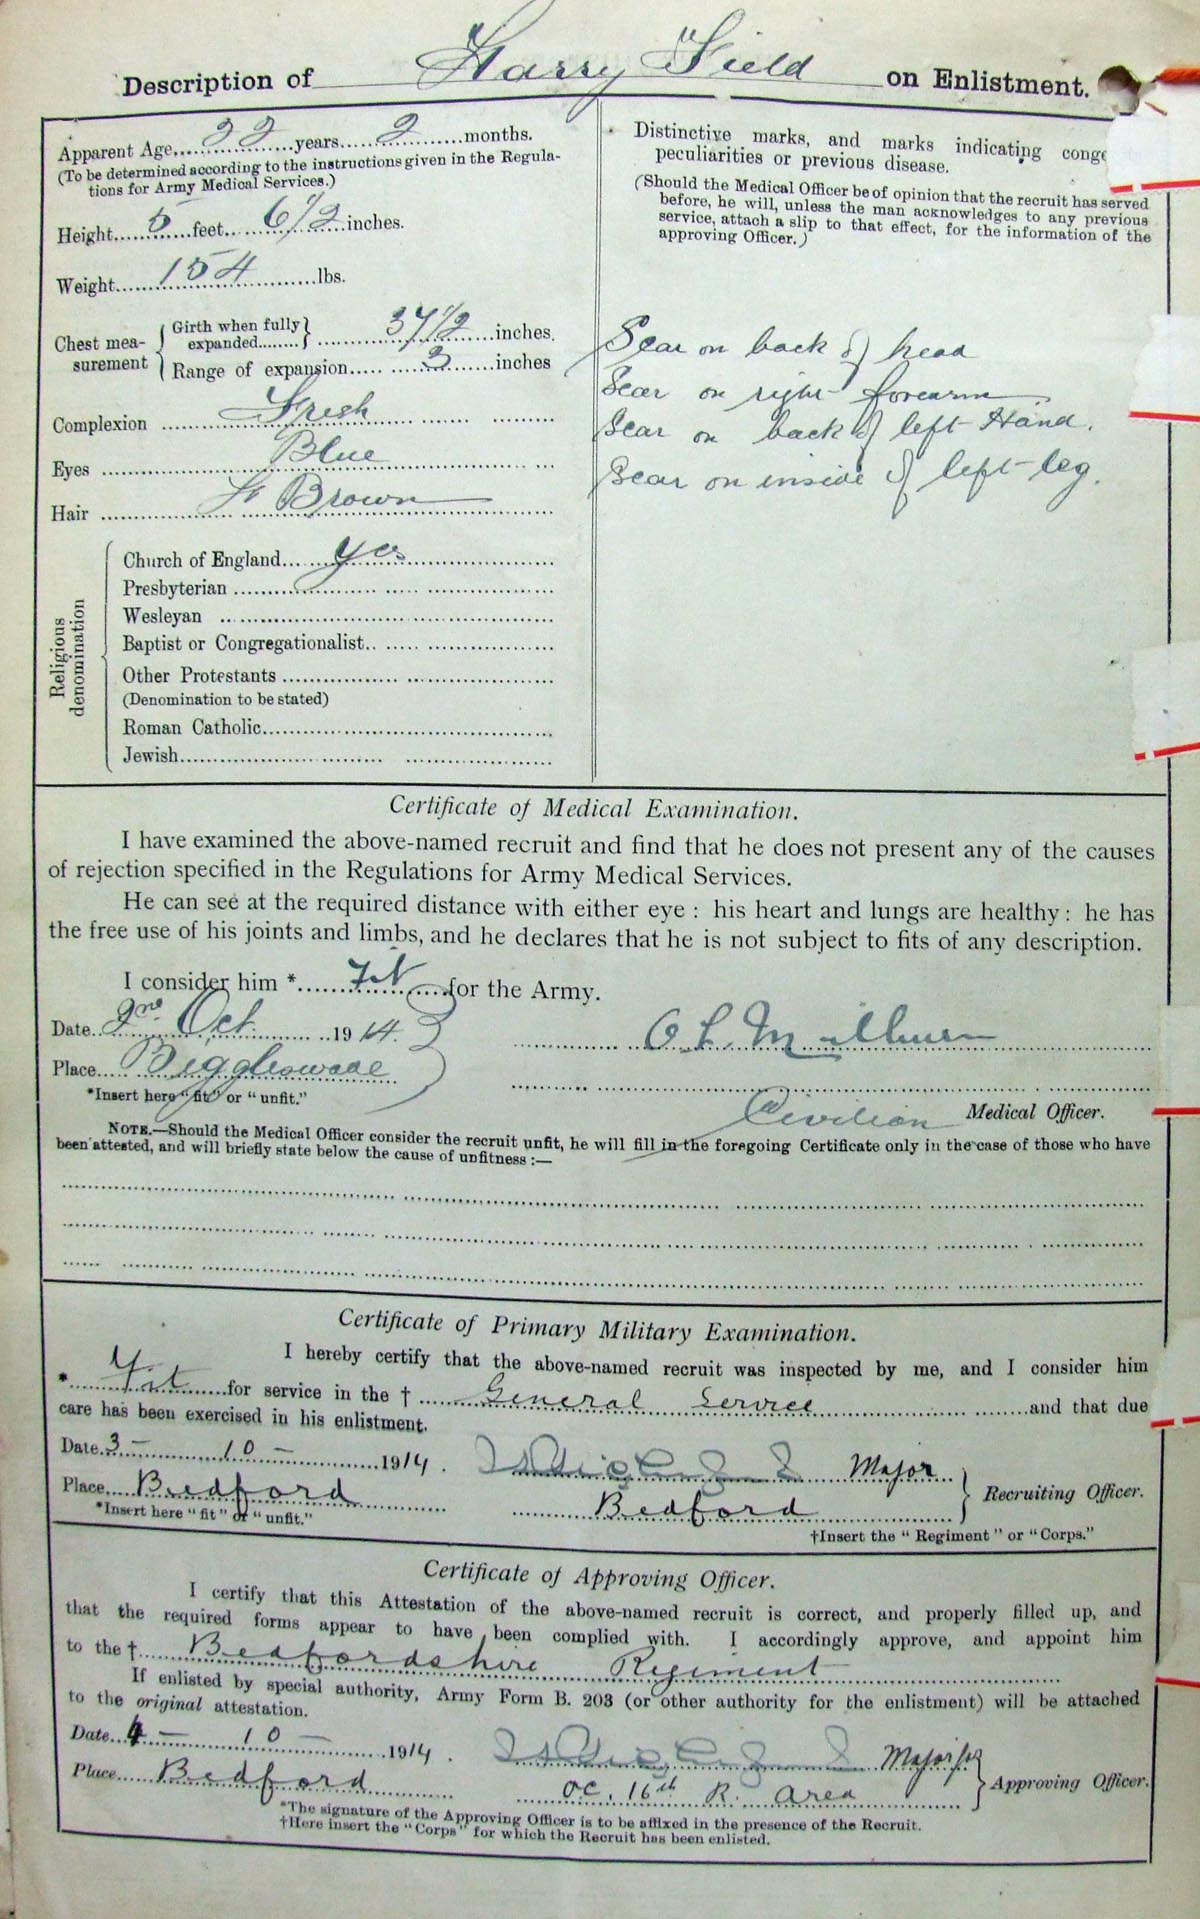 Description of Harry Field on Enlistment.
Apparent Age 22 years 2 months.
(To be determined according to the instructions given in the Regula-
tions for Army Medical Services.)
Height 5 feet 6 1/2 inches.
Weight 154 lbs.
Chest mea-
surement
Girth when fully
expanded 37 1/2 inches.
Range of expansion 3 inches
Complexion Fresh
Eyes Blue
Hair Lt Brown
Religious
denomination
Church of England yes
Presbyterian
Wesleyan
Baptist or Congregationalist
Other Protestants
(Denomination to be stated)
Roman Catholic
Jewish
Distinctive marks, and marks indicating
peculiarities or previous disease.
(Should the Medical Officer be of opinion that the recruit has served
before, he will, unless the man acknowledges to any previous
service, attach a slip to that effect, for the information of the
approving Officer.)
Scar on back of head
Scar on right forearm
Scar on back of left Hand.
Scar on inside of left leg.
Certificate of Medical Examination.
I have examined the above-named recruit and find that he does not present any of the causes
of rejection specified in the Regulations for Army Medical Services.
He can see at the required distance with either eye : his heart and lungs are healthy : he has
the free use of his joints and limbs, and he declares that he is not subject to fits of any description.
I consider him * Fit for the Army.
Date Oct 1914.
Place Biggleswade
*Insert here "fit" or "unfit."
Civilian Medical Officer.
NOTE.—Should the Medical Officer consider the recruit unfit, he will fill in the foregoing Certificate only in the case of those who have
been attested, and will briefly state below the cause of unfitness :—
Certificate of Primary Military Examination.
I hereby certify that the above-named recruit was inspected by me, and I consider him
* Fit for service in the † General Service and that due
care has been exercised in his enlistment.
Date 3 - 10 - 1914.
Place Bedford
*Insert here "fit" or "unfit."
Major
Bedford
Recruiting Officer.
†Insert the "Regiment" or "Corps."
Certificate of Approving Officer.
I certify that this Attestation of the above-named recruit is correct, and properly filled up, and
that the required forms appear to have been complied with. I accordingly approve, and appoint him
to the † Bedfordshire Regiment
If enlisted by special authority, Army Form B. 203 (or other authority for the enlistment) will be attached
to the original attestation.
Date 4 - 10 - 1914.
Place Bedford
Major
OC. 16th R. Area
Approving Officer.
*The signature of the Approving Officer is to be affixed in the presence of the Recruit.
†Here insert the "Corps" for which the Recruit has been enlisted.